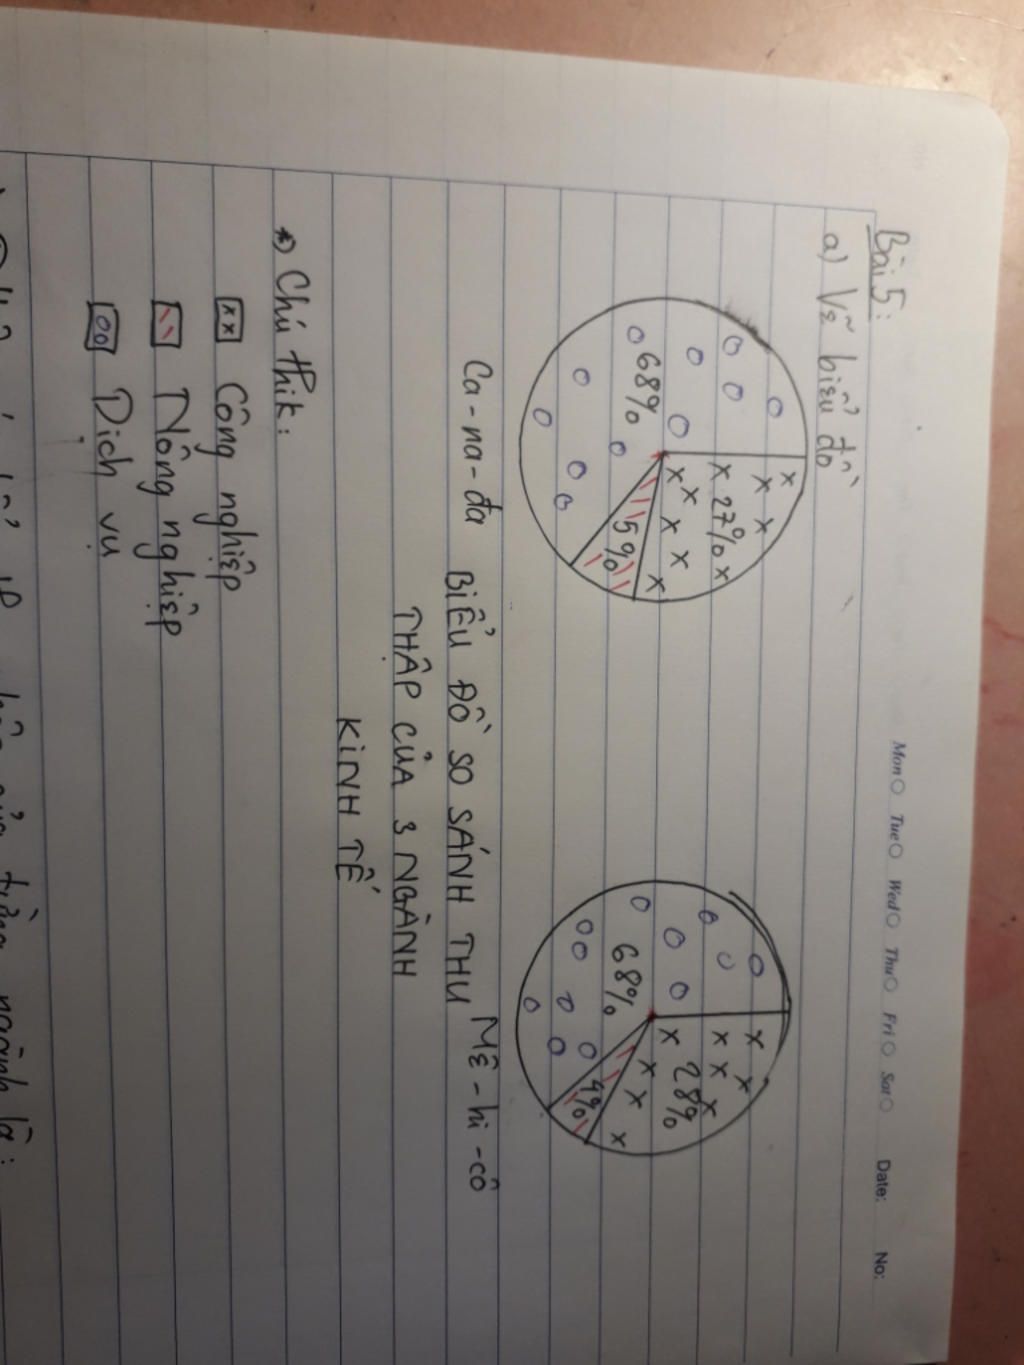 Mon Tue Wed Thu Fri Sat Date: No:
Bài 5:
a) Vẽ biểu đồ
27%
68%
5%
28%
68%
4%
Ca-na-đa
Mê-hi-cô
BIỂU ĐỒ SO SÁNH THU
THẬP CỦA 3 NGÀNH
KINH TẾ
*) Chú thik:
xx Công nghiệp
Nông nghiệp
Dịch vụ